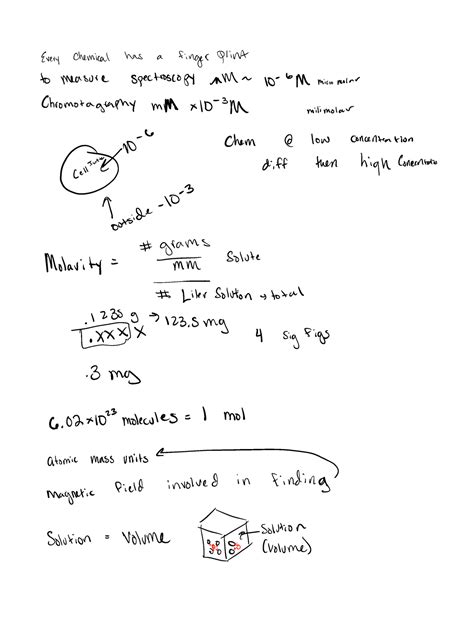 Every Chemical has a finger print
to measure spectroscopy μM ~ 10⁻⁶ M micro molar
Chromotagraphy mM x10⁻³ M
milimolar
Chem @ low concentration
diff then high Concentratio
Cell Juice
10⁻⁶
outside - 10⁻³
Molarity =
# grams
mm
Solute
# Liter Solution → total
.1235 g → 123.5 mg
.xxx x
4 sig figs
.3 mg
6.02 x 10²³ molecules = 1 mol
atomic mass units
magnetic field involved in finding
Solution = Volume
Solution
(Volume)